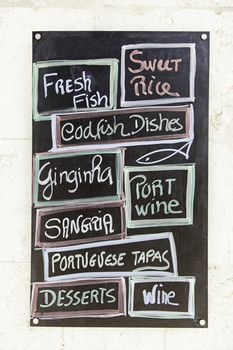 Fresh
Fish
Sweet
Rice
Codfish Dishes
Ginginha
Port
wine
Sangria
Portuguese Tapas
Desserts
Wine